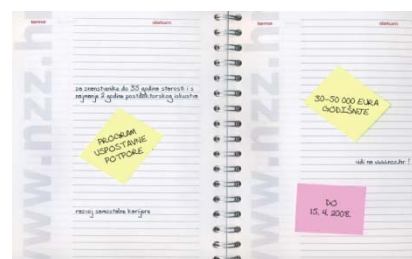 www.nzz.hr
za znanstvenike do 35 godina starosti i s
najmanje 2 godine postdoktorskog iskustva
PROGRAM
USPOSTAVNE
POTPORE
razvoj samostalne karijere
www.nzz.hr
30-50 000 EURA
GODIŠNJE
vidi na www.nzz.hr !
DO
15. 4. 2008.